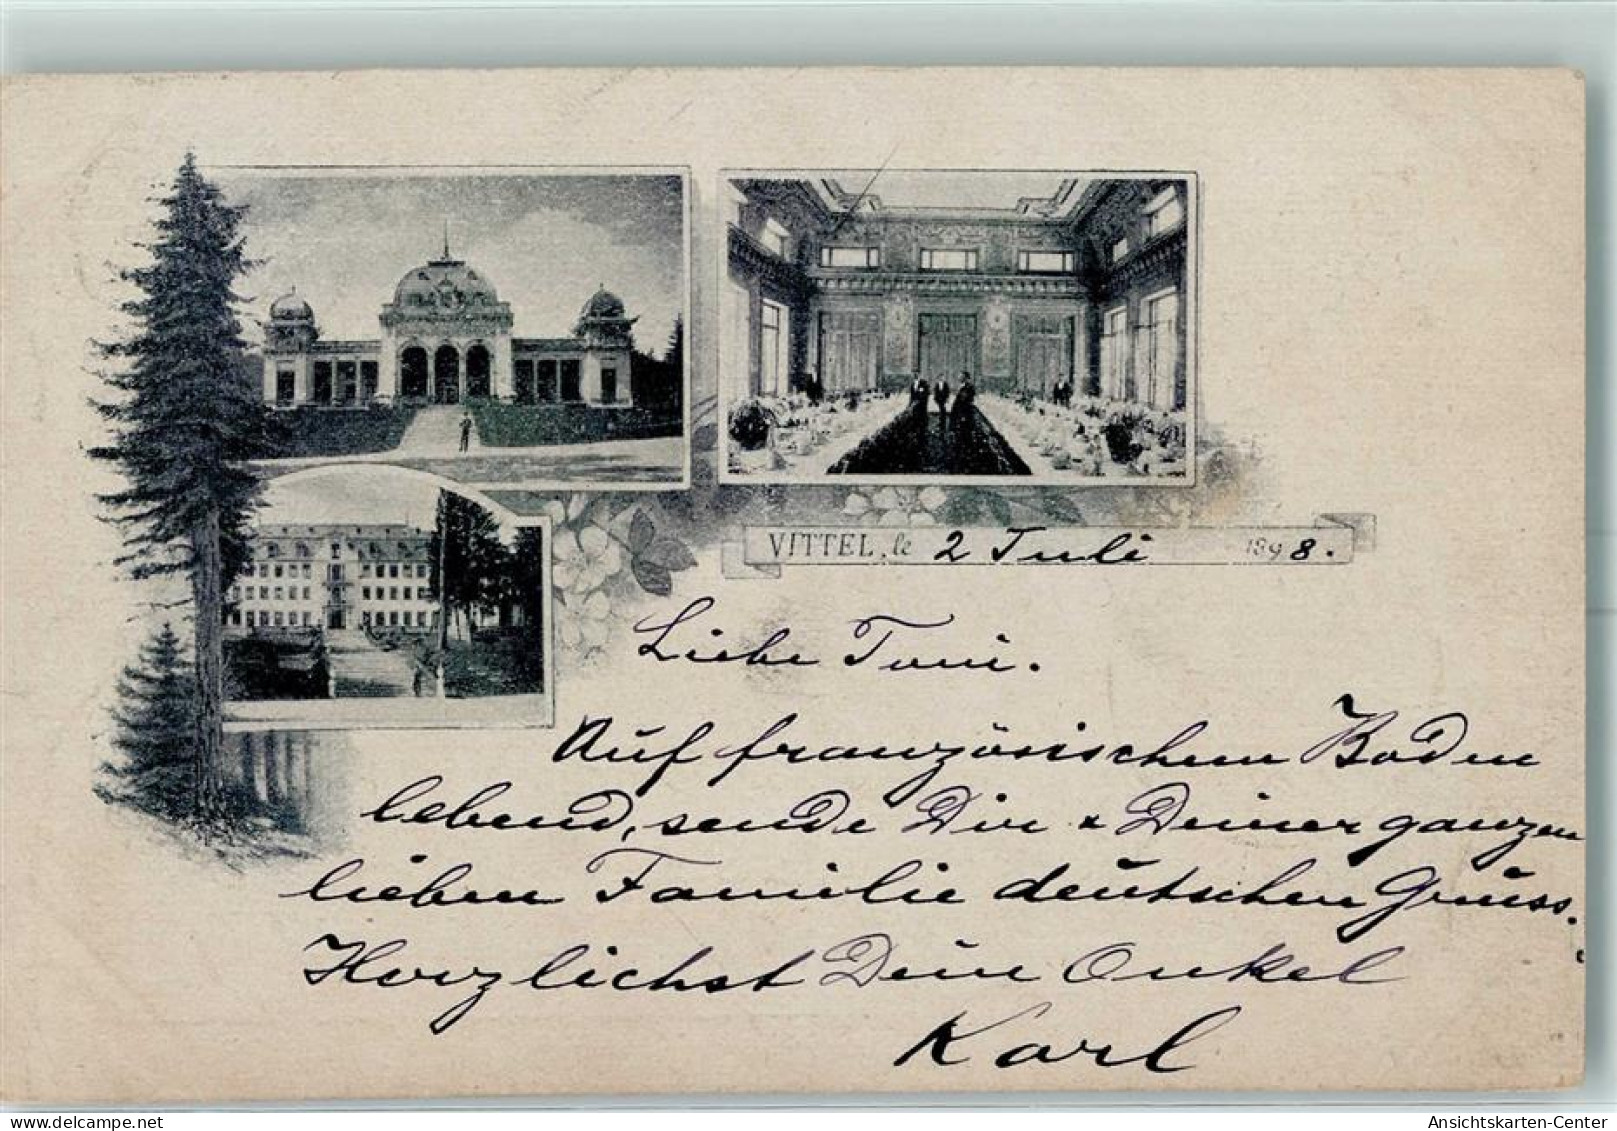 VITTEL, le 2 Juli 1898.
Liebe Toni.
Auf französischem Boden
lebend, sende Dir & Deiner ganzen
lieben Familie deutschen Gruss.
Herzlichst Dein Onkel
Karl
Ansichtskarten-Center